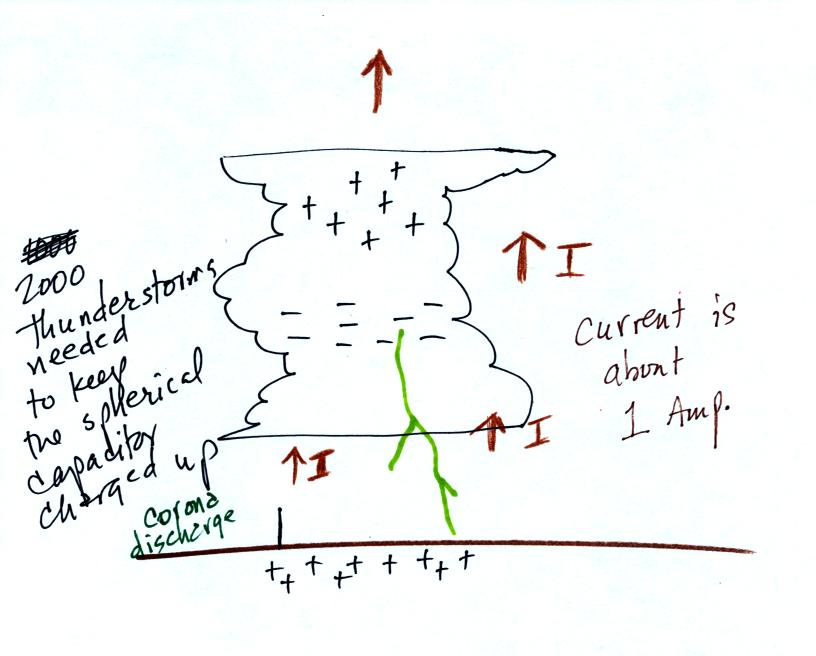 2000
thunderstorms
needed
to keep
the spherical
capacitor
charged up
I
current is
about
1 Amp.
I
I
corona
discharge